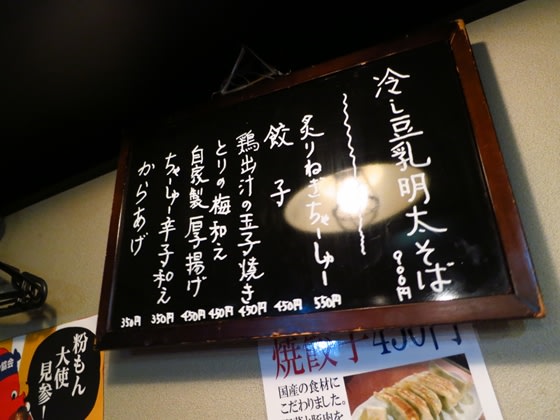 冷し豆乳明太そば 900円
炙りねぎちゃーしゅー 550円
餃子 450円
鶏出汁の玉子焼き 450円
とりの梅和え 450円
自家製厚揚げ 450円
ちゃーしゅー辛子和え 350円
からあげ 350円
粉もん
大使
見参!
協会
焼餃子450円
国産の食材に
こだわりました。